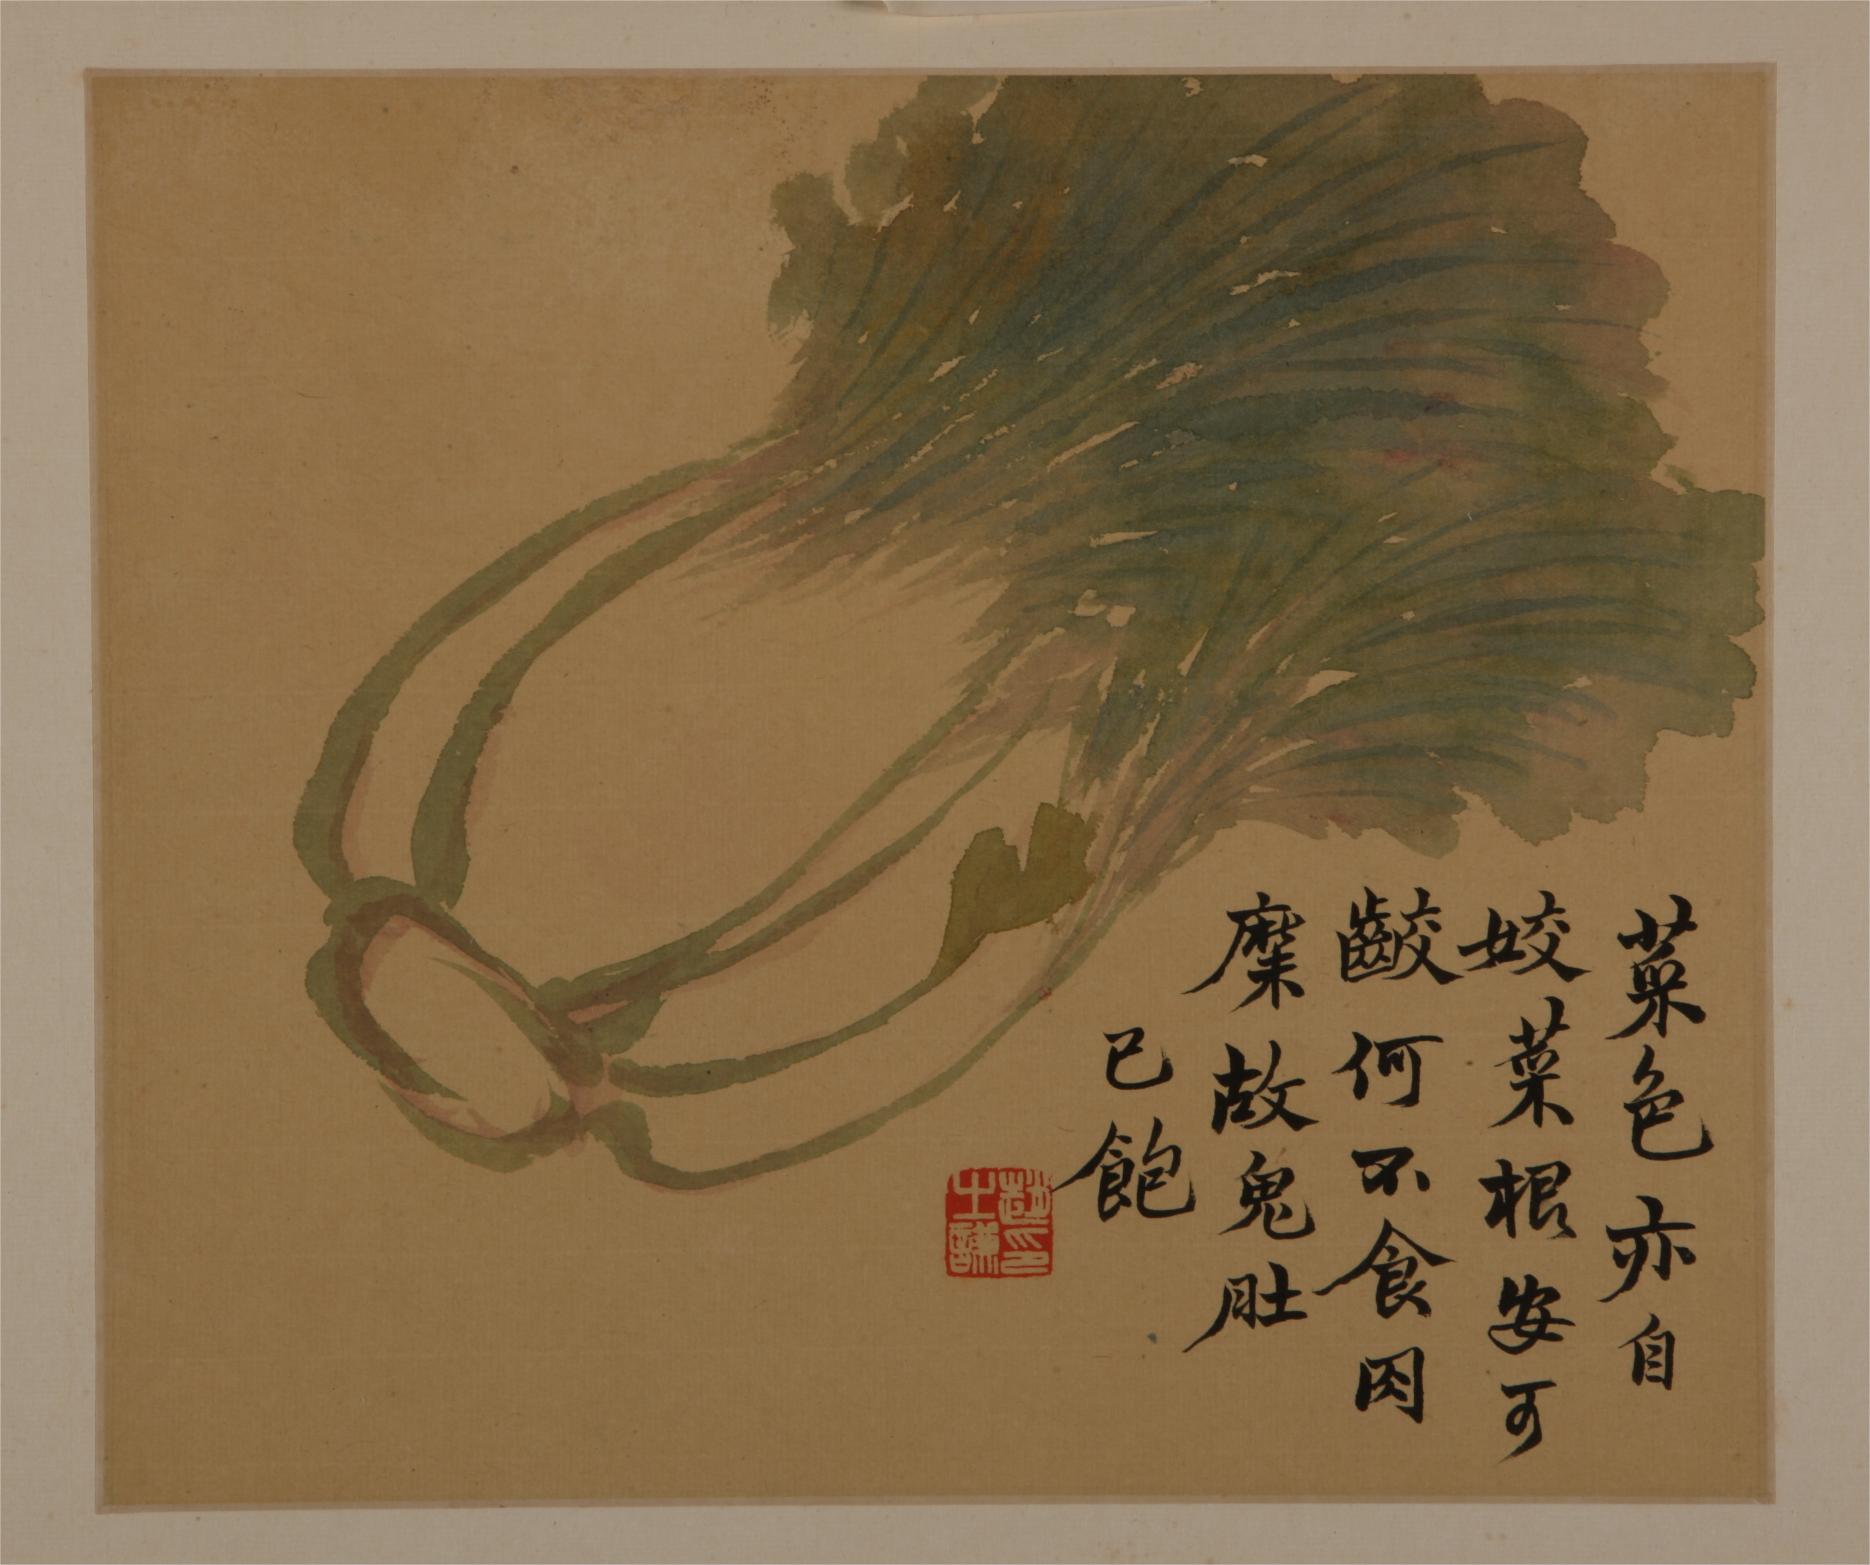 菜色亦自
姣菜根安可
齩何不食肉
糜故鬼肚
已飽
趙印之謙